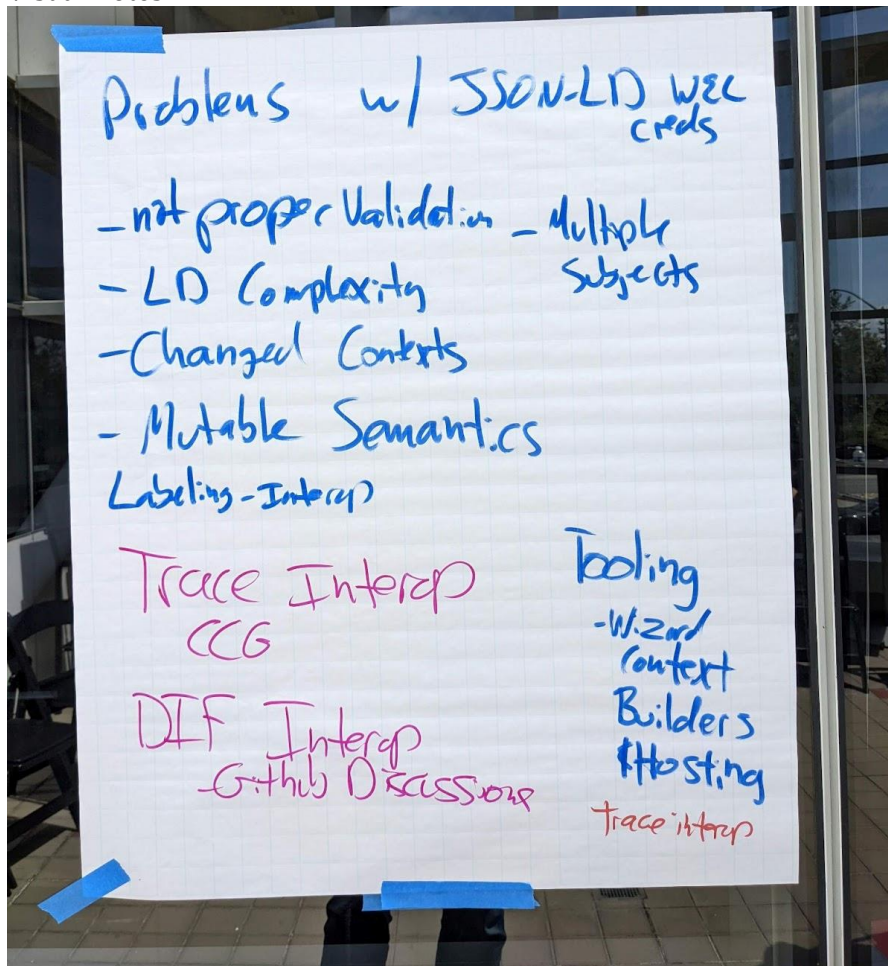 Problems w/ JSON-LD W3C
creds
- not proper Validation
- LD Complexity
- Changed Contexts
- Mutable Semantics
Labeling - Interop
- Multiple
Subjects
Trace Interop
CCG
DIF Interop
- Github Discussions
Tooling
- Wizard
Context
Builders
& Hosting
trace interop